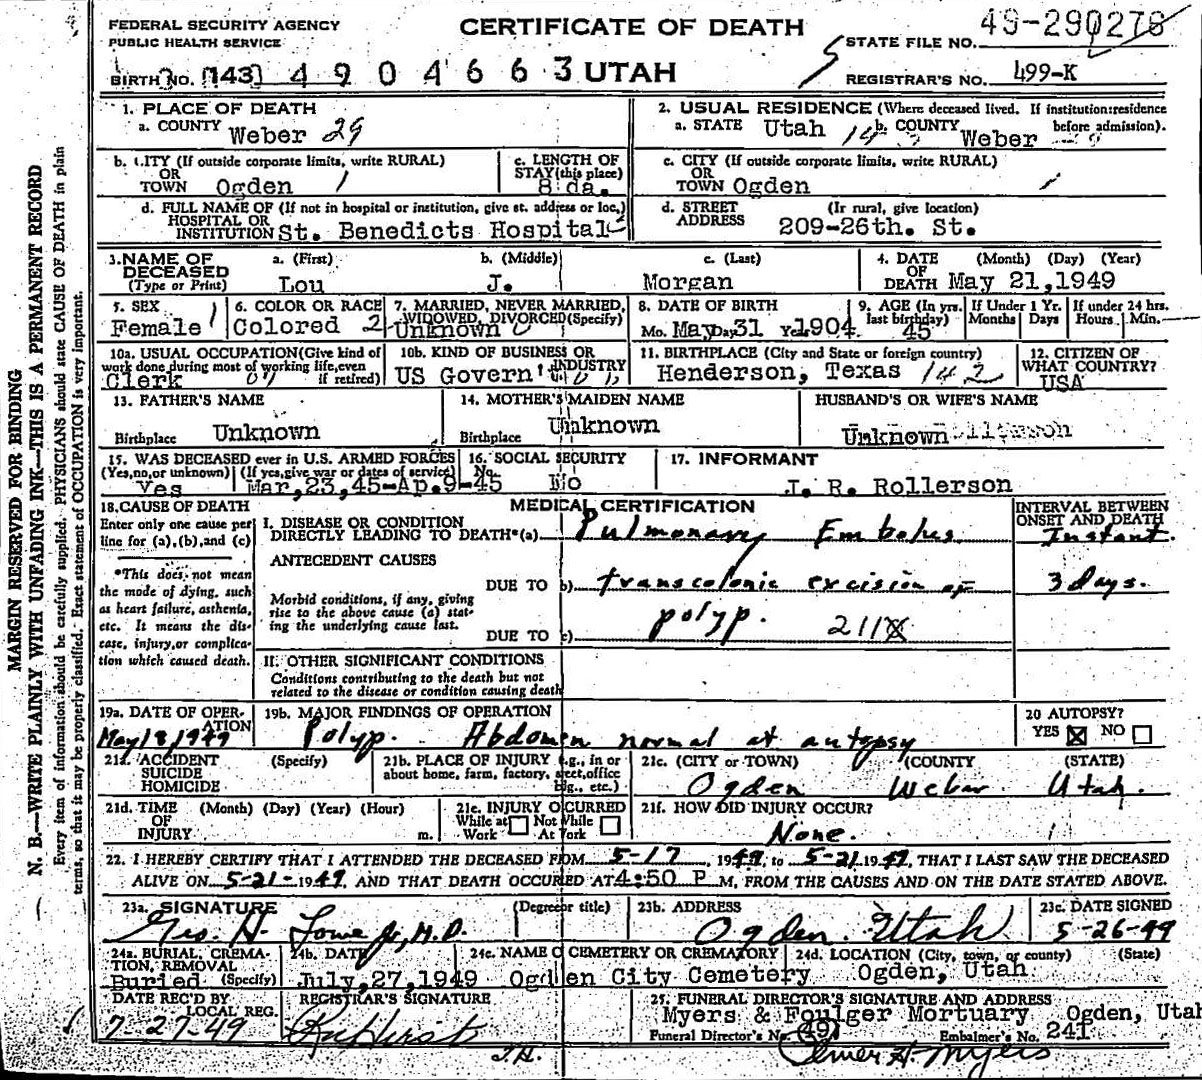 FEDERAL SECURITY AGENCY
PUBLIC HEALTH SERVICE
CERTIFICATE OF DEATH
49-290278
STATE FILE NO.
BIRTH NO. (143) 4 9 0 4 6 6 3 UTAH
REGISTRAR'S NO. 499-K
1. PLACE OF DEATH
a. COUNTY Weber 29
2. USUAL RESIDENCE (Where deceased lived. If institution:residence before admission).
a. STATE Utah b. COUNTY Weber
b. CITY (If outside corporate limits, write RURAL) OR TOWN Ogden 1
c. LENGTH OF STAY(this place) 8 da.
c. CITY (If outside corporate limits, write RURAL) OR TOWN Ogden
d. FULL NAME OF (If not in hospital or institution, give st. address or loc.) HOSPITAL OR INSTITUTION St. Benedicts Hospital
d. STREET ADDRESS (Ir rural, give location) 209-26th. St.
3. NAME OF DECEASED (Type or Print)
a. (First) Lou
b. (Middle) J.
c. (Last) Morgan
4. DATE OF DEATH (Month) (Day) (Year) May 21,1949
5. SEX Female 1
6. COLOR OR RACE Colored 2
7. MARRIED, NEVER MARRIED, WIDOWED, DIVORCED(Specify) Unknown
8. DATE OF BIRTH Mo. May Day 31 Year 1904
9. AGE (In yrs. last birthday) 45
If Under 1 Yr. Months Days
If under 24 hrs. Hours Min.
10a. USUAL OCCUPATION(Give kind of work done during most of working life,even if retired) Clerk
10b. KIND OF BUSINESS OR INDUSTRY US Govern't
11. BIRTHPLACE (City and State or foreign country) Henderson, Texas 142
12. CITIZEN OF WHAT COUNTRY? USA
13. FATHER'S NAME
Birthplace Unknown
14. MOTHER'S MAIDEN NAME
Birthplace Unknown
HUSBAND'S OR WIFE'S NAME
Unknown
15. WAS DECEASED ever in U.S. ARMED FORCES (Yes,no,or unknown) (If yes,give war or dates of service)
Yes Mar,23,45-Ap.9-45
16. SOCIAL SECURITY No. No
17. INFORMANT
J. R. Rollerson
18. CAUSE OF DEATH
Enter only one cause per line for (a),(b),and (c)
*This does not mean the mode of dying, such as heart failure, asthenia, etc. It means the disease, injury,or complication which caused death.
MEDICAL CERTIFICATION
INTERVAL BETWEEN ONSET AND DEATH
I. DISEASE OR CONDITION DIRECTLY LEADING TO DEATH*(a) Pulmonary Embolus Instant.
ANTECEDENT CAUSES
DUE TO b) transcolonic excision of 3 days.
Morbid conditions, if any, giving rise to the above cause (a) stating the underlying cause last.
polyp. 211X
DUE TO c)
II. OTHER SIGNIFICANT CONDITIONS
Conditions contributing to the death but not related to the disease or condition causing death
19a. DATE OF OPERATION May 18, 1949
19b. MAJOR FINDINGS OF OPERATION
Polyp. Abdomen normal at autopsy
20 AUTOPSY?
YES ☒ NO ☐
21a. ACCIDENT SUICIDE HOMICIDE (Specify)
21b. PLACE OF INJURY e.g., in or about home, farm, factory, street,office blg., etc.)
21c. (CITY or TOWN) (COUNTY (STATE)
Ogden Weber Utah.
21d. TIME OF INJURY (Month) (Day) (Year) (Hour) m.
21e. INJURY OCURRED While at Work ☐ Not While At Work ☐
21f. HOW DID INJURY OCCUR?
None.
22. I HEREBY CERTIFY THAT I ATTENDED THE DECEASED FROM 5-17, 1949, to 5-21 1949, THAT I LAST SAW THE DECEASED
ALIVE ON 5-21-1949, AND THAT DEATH OCCURED AT 4:50 P M, FROM THE CAUSES AND ON THE DATE STATED ABOVE.
23a. SIGNATURE (Degree or title)
Geo. H. Lowe Jr, M.D.
23b. ADDRESS
Ogden. Utah
23c. DATE SIGNED
5-26-49
24a. BURIAL, CREMATION, REMOVAL (Specify) Buried
24b. DATE July,27,1949
24c. NAME O CEMETERY OR CREMATORY Ogden City Cemetery
24d. LOCATION (City, town, or county) (State) Ogden, Utah
DATE REC'D BY LOCAL REG.
7-27-49
REGISTRAR'S SIGNATURE
J.H.
25. FUNERAL DIRECTOR'S SIGNATURE AND ADDRESS
Myers & Foulger Mortuary Ogden, Utah
Funeral Director's No. 491 Embalmer's No. 241
Elmer H. Myers
MARGIN RESERVED FOR BINDING
N. B.—WRITE PLAINLY WITH UNFADING INK—THIS IS A PERMANENT RECORD
Every item of information should be carefully supplied. PHYSICIANS should state CAUSE OF DEATH in plain
terms, so that it may be properly classified. Exact statement of OCCUPATION is very important.